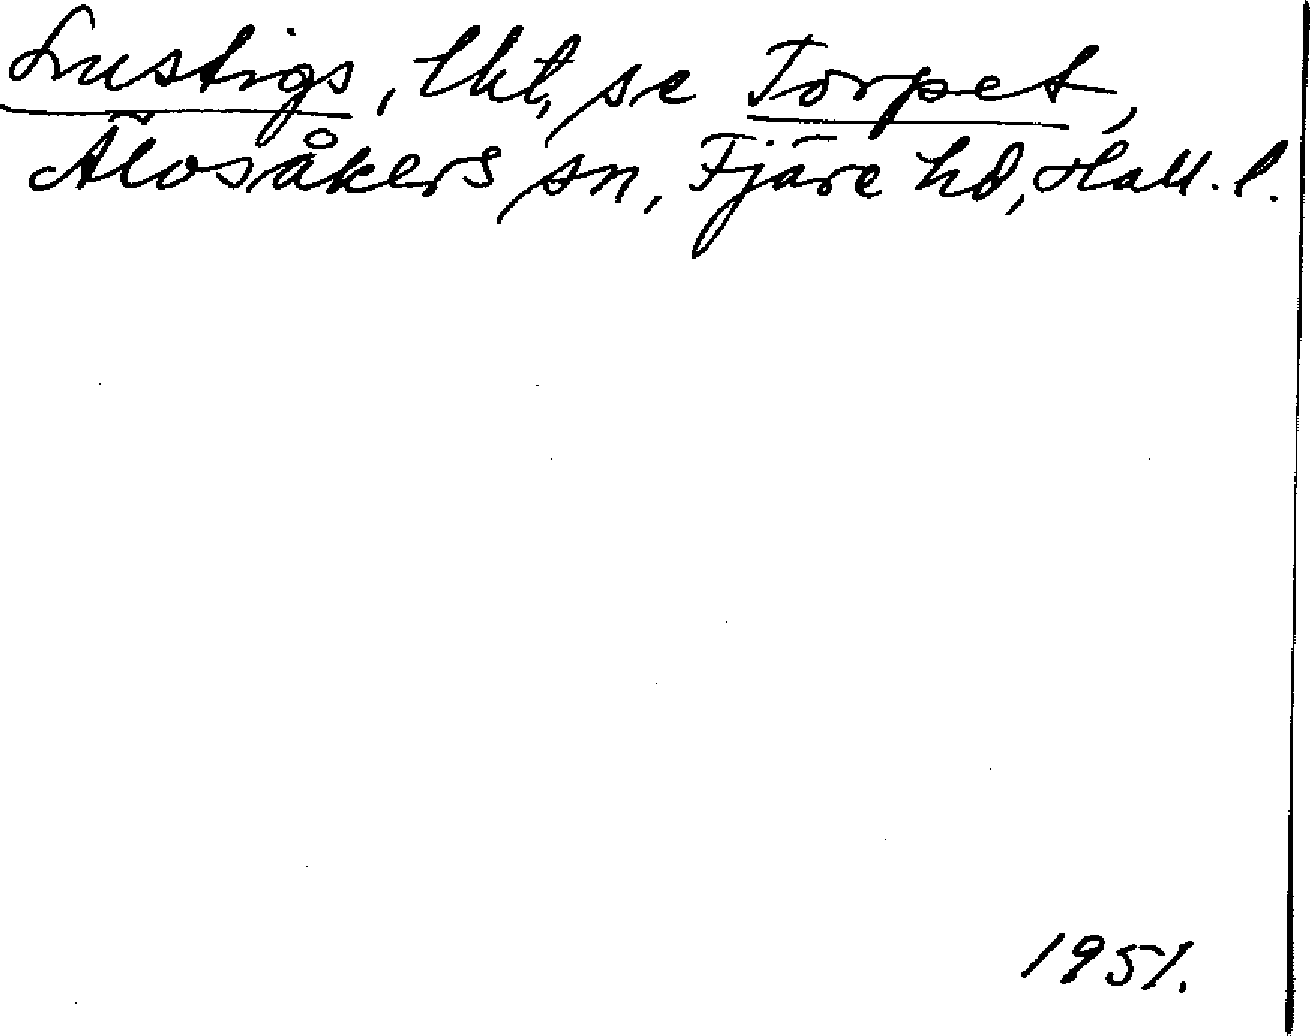 Lustigs, lht, se Torpet,
Älvsåkers sn, Fjäre hd, Hall. l.
1951.